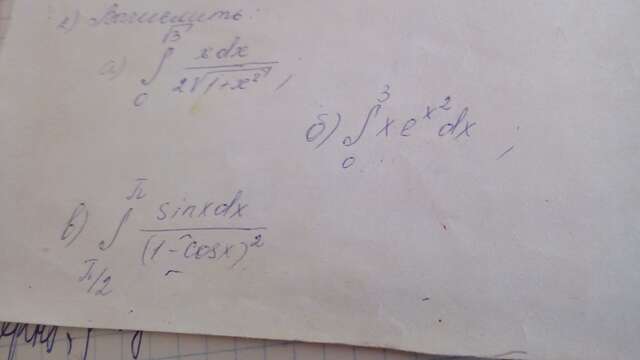 2) Вычислить:
а) ∫₀^√3 xdx / 2√(1+x²) ;
б) ∫₀³ x e^(x²) dx ;
в) ∫_(π/2)^π sinxdx / (1-cosx)²